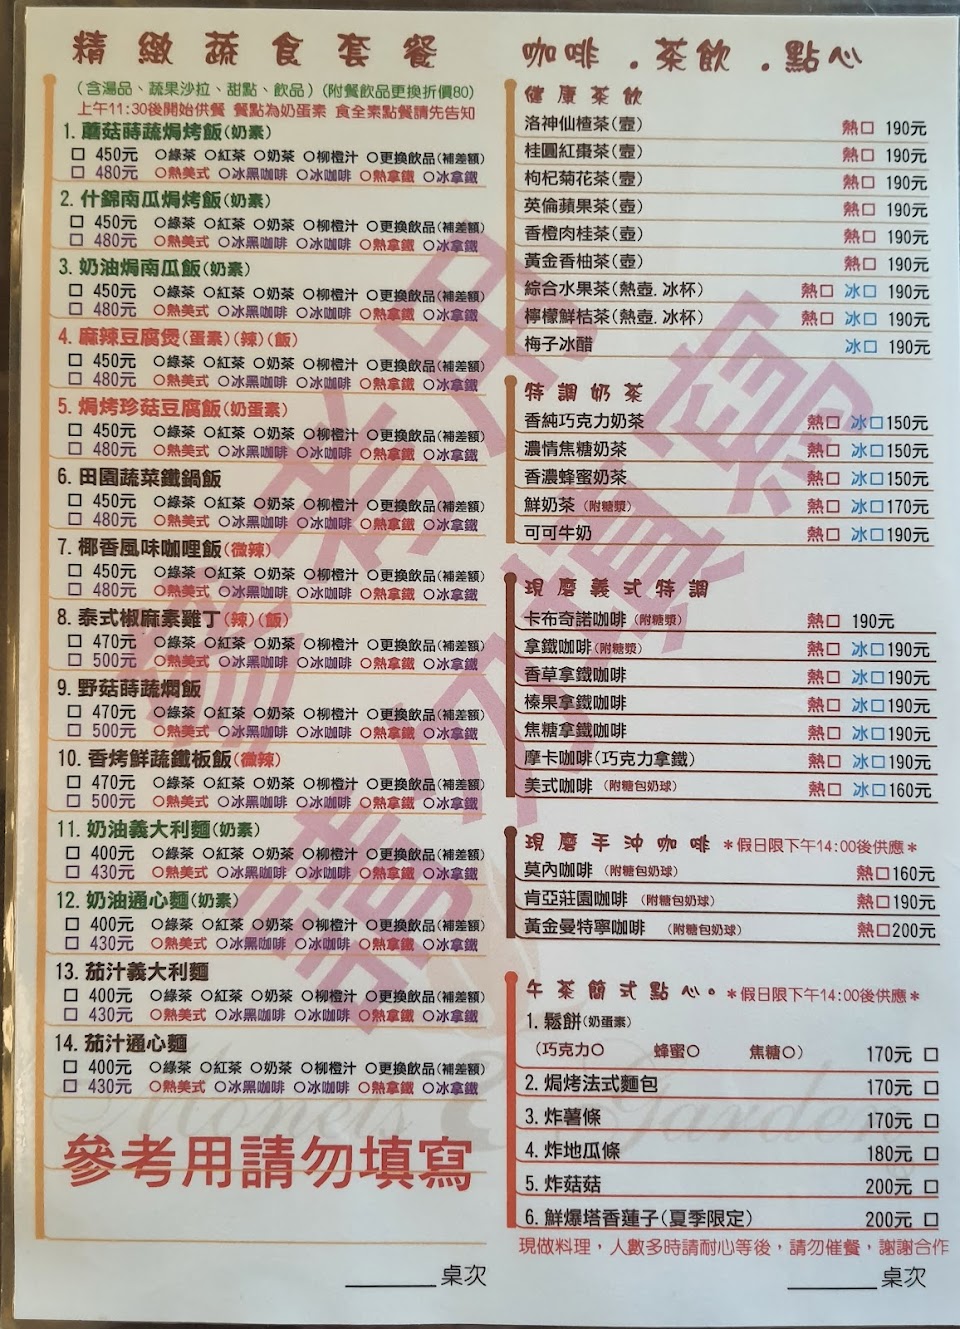 精緻蔬食套餐
(含湯品、蔬果沙拉、甜點、飲品)(附餐飲品更換折價80)
上午11:30後開始供餐 餐點為奶蛋素 食全素點餐請先告知
1. 蘑菇蒔蔬焗烤飯(奶素)
□ 450元 ○綠茶 ○紅茶 ○奶茶 ○柳橙汁 ○更換飲品(補差額)
□ 480元 ○熱美式 ○冰黑咖啡 ○冰咖啡 ○熱拿鐵 ○冰拿鐵
2. 什錦南瓜焗烤飯(奶素)
□ 450元 ○綠茶 ○紅茶 ○奶茶 ○柳橙汁 ○更換飲品(補差額)
□ 480元 ○熱美式 ○冰黑咖啡 ○冰咖啡 ○熱拿鐵 ○冰拿鐵
3. 奶油焗南瓜飯(奶素)
□ 450元 ○綠茶 ○紅茶 ○奶茶 ○柳橙汁 ○更換飲品(補差額)
□ 480元 ○熱美式 ○冰黑咖啡 ○冰咖啡 ○熱拿鐵 ○冰拿鐵
4. 麻辣豆腐煲(蛋素)(辣)(飯)
□ 450元 ○綠茶 ○紅茶 ○奶茶 ○柳橙汁 ○更換飲品(補差額)
□ 480元 ○熱美式 ○冰黑咖啡 ○冰咖啡 ○熱拿鐵 ○冰拿鐵
5. 焗烤珍菇豆腐飯(奶蛋素)
□ 450元 ○綠茶 ○紅茶 ○奶茶 ○柳橙汁 ○更換飲品(補差額)
□ 480元 ○熱美式 ○冰黑咖啡 ○冰咖啡 ○熱拿鐵 ○冰拿鐵
6. 田園蔬菜鐵鍋飯
□ 450元 ○綠茶 ○紅茶 ○奶茶 ○柳橙汁 ○更換飲品(補差額)
□ 480元 ○熱美式 ○冰黑咖啡 ○冰咖啡 ○熱拿鐵 ○冰拿鐵
7. 椰香風味咖哩飯(微辣)
□ 450元 ○綠茶 ○紅茶 ○奶茶 ○柳橙汁 ○更換飲品(補差額)
□ 480元 ○熱美式 ○冰黑咖啡 ○冰咖啡 ○熱拿鐵 ○冰拿鐵
8. 泰式椒麻素雞丁(辣)(飯)
□ 470元 ○綠茶 ○紅茶 ○奶茶 ○柳橙汁 ○更換飲品(補差額)
□ 500元 ○熱美式 ○冰黑咖啡 ○冰咖啡 ○熱拿鐵 ○冰拿鐵
9. 野菇蒔蔬燜飯
□ 470元 ○綠茶 ○紅茶 ○奶茶 ○柳橙汁 ○更換飲品(補差額)
□ 500元 ○熱美式 ○冰黑咖啡 ○冰咖啡 ○熱拿鐵 ○冰拿鐵
10. 香烤鮮蔬鐵板飯(微辣)
□ 470元 ○綠茶 ○紅茶 ○奶茶 ○柳橙汁 ○更換飲品(補差額)
□ 500元 ○熱美式 ○冰黑咖啡 ○冰咖啡 ○熱拿鐵 ○冰拿鐵
11. 奶油義大利麵(奶素)
□ 400元 ○綠茶 ○紅茶 ○奶茶 ○柳橙汁 ○更換飲品(補差額)
□ 430元 ○熱美式 ○冰黑咖啡 ○冰咖啡 ○熱拿鐵 ○冰拿鐵
12. 奶油通心麵(奶素)
□ 400元 ○綠茶 ○紅茶 ○奶茶 ○柳橙汁 ○更換飲品(補差額)
□ 430元 ○熱美式 ○冰黑咖啡 ○冰咖啡 ○熱拿鐵 ○冰拿鐵
13. 茄汁義大利麵
□ 400元 ○綠茶 ○紅茶 ○奶茶 ○柳橙汁 ○更換飲品(補差額)
□ 430元 ○熱美式 ○冰黑咖啡 ○冰咖啡 ○熱拿鐵 ○冰拿鐵
14. 茄汁通心麵
□ 400元 ○綠茶 ○紅茶 ○奶茶 ○柳橙汁 ○更換飲品(補差額)
□ 430元 ○熱美式 ○冰黑咖啡 ○冰咖啡 ○熱拿鐵 ○冰拿鐵
參考用請勿填寫
______桌次
咖啡.茶飲.點心
健康茶飲
洛神仙楂茶(壺) 熱□ 190元
桂圓紅棗茶(壺) 熱□ 190元
枸杞菊花茶(壺) 熱□ 190元
英倫蘋果茶(壺) 熱□ 190元
香橙肉桂茶(壺) 熱□ 190元
黃金香柚茶(壺) 熱□ 190元
綜合水果茶(熱壺.冰杯) 熱□ 冰□ 190元
檸檬鮮桔茶(熱壺.冰杯) 熱□ 冰□ 190元
梅子冰醋 冰□ 190元
特調奶茶
香純巧克力奶茶 熱□ 冰□150元
濃情焦糖奶茶 熱□ 冰□150元
香濃蜂蜜奶茶 熱□ 冰□150元
鮮奶茶(附糖漿) 熱□ 冰□170元
可可牛奶 熱□ 冰□190元
現磨義式特調
卡布奇諾咖啡(附糖漿) 熱□ 190元
拿鐵咖啡(附糖漿) 熱□ 冰□190元
香草拿鐵咖啡 熱□ 冰□190元
榛果拿鐵咖啡 熱□ 冰□190元
焦糖拿鐵咖啡 熱□ 冰□190元
摩卡咖啡(巧克力拿鐵) 熱□ 冰□190元
美式咖啡(附糖包奶球) 熱□ 冰□160元
現磨手沖咖啡 *假日限下午14:00後供應*
莫內咖啡(附糖包奶球) 熱□160元
肯亞莊園咖啡(附糖包奶球) 熱□190元
黃金曼特寧咖啡(附糖包奶球) 熱□200元
午茶簡式點心。 *假日限下午14:00後供應*
1. 鬆餅(奶蛋素)
(巧克力○ 蜂蜜○ 焦糖○) 170元 □
2. 焗烤法式麵包 170元 □
3. 炸薯條 170元 □
4. 炸地瓜條 180元 □
5. 炸菇菇 200元 □
6. 鮮爆塔香蓮子(夏季限定) 200元 □
現做料理，人數多時請耐心等後，請勿催餐，謝謝合作
______桌次
參考用
請勿填寫
Monet's Garden